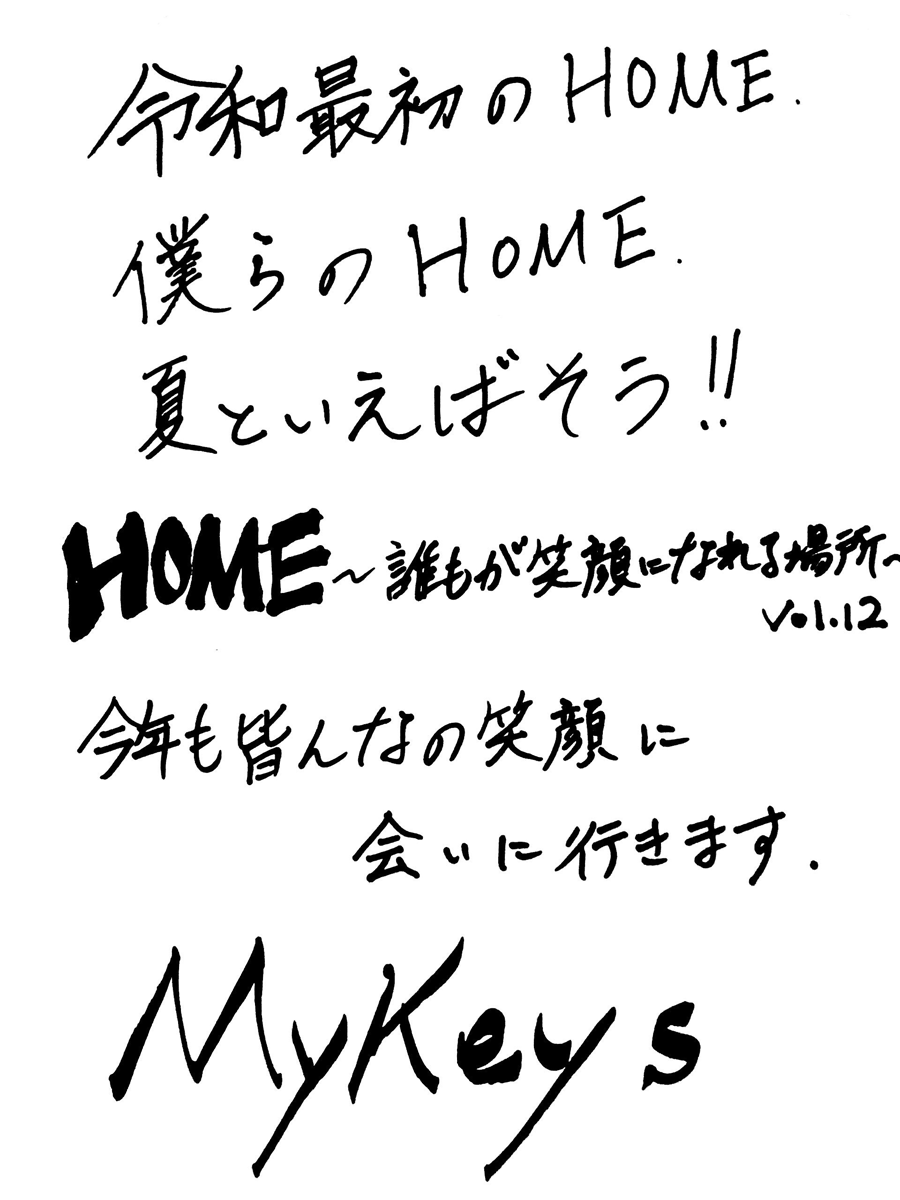 令和最初のHOME.
僕らのHOME.
夏といえばそう!!
HOME～誰もが笑顔になれる場所～
Vol.12
今年も皆んなの笑顔に
会いに行きます.
MyKeys